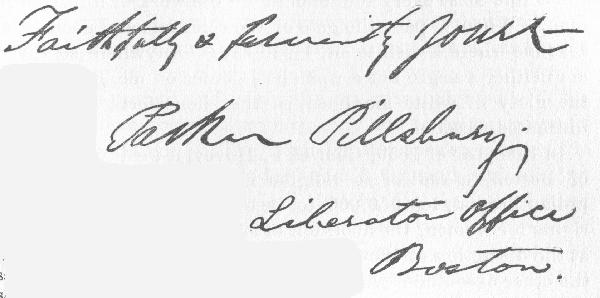 Faithfully & fervently yours
Parker Pillsbury,
Liberator Office
Boston.